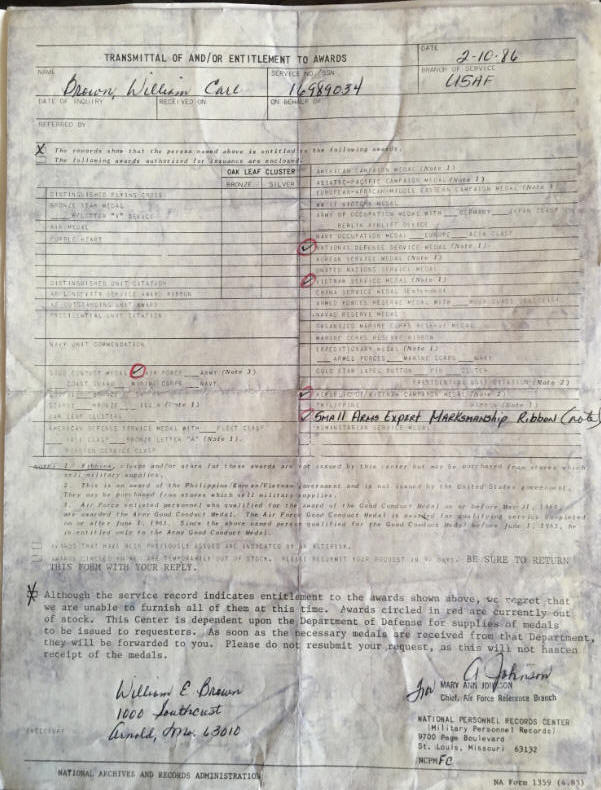 TRANSMITTAL OF AND/OR ENTITLEMENT TO AWARDS
DATE
2-10-86
NAME
Brown, William Carl
SERVICE NO./SSN
16989034
BRANCH OF SERVICE
USAF
DATE OF INQUIRY
RECEIVED ON
ON BEHALF OF
REFERRED BY
X The records show that the person named above is entitled to the following awards.
The following awards authorized for issuance are enclosed.
OAK LEAF CLUSTER
BRONZE SILVER
DISTINGUISHED FLYING CROSS
BRONZE STAR MEDAL
W/LETTER "V" DEVICE
AIR MEDAL
PURPLE HEART
DISTINGUISHED UNIT CITATION
AF LONGEVITY SERVICE AWARD RIBBON
AF OUTSTANDING UNIT AWARD
PRESIDENTIAL UNIT CITATION
NAVY UNIT COMMENDATION
GOOD CONDUCT MEDAL ✓ AIR FORCE ARMY (Note 3)
COAST GUARD MARINE CORPS NAVY
OAK LEAF CLUSTER
AMERICAN DEFENSE SERVICE MEDAL WITH FLEET CLASP
BASE CLASP BRONZE LETTER "A" (Note 1)
FOREIGN SERVICE CLASP
AMERICAN CAMPAIGN MEDAL (Note 1)
ASIATIC-PACIFIC CAMPAIGN MEDAL (Note 1)
EUROPEAN-AFRICAN-MIDDLE EASTERN CAMPAIGN MEDAL (Note 1)
WWII VICTORY MEDAL
ARMY OF OCCUPATION MEDAL WITH GERMANY JAPAN CLASP
BERLIN AIRLIFT DEVICE
NAVY OCCUPATION MEDAL EUROPE ASIA CLASP
✓ NATIONAL DEFENSE SERVICE MEDAL (Note 1)
KOREAN SERVICE MEDAL (Note 1)
UNITED NATIONS SERVICE MEDAL
✓ VIETNAM SERVICE MEDAL (Note 1)
CHINA SERVICE MEDAL
ARMED FORCES RESERVE MEDAL WITH HOUR GLASS
NAVAL RESERVE MEDAL
ORGANIZED MARINE CORPS RESERVE MEDAL
MARINE CORPS RESERVE RIBBON
EXPEDITIONARY MEDAL (Note 1)
ARMED FORCES MARINE CORPS NAVY
GOLD STAR LAPEL BUTTON PIN CLUTCH
PRESIDENTIAL UNIT CITATION (Note 2)
✓ REPUBLIC OF VIETNAM CAMPAIGN MEDAL (Note 2)
PHILIPPINE
✓ SMALL ARMS EXPERT MARKSMANSHIP RIBBON (note
HUMANITARIAN SERVICE MEDAL
NOTE: 1. Ribbons, clasps and/or stars for these awards are not issued by this center but may be purchased from stores which
sell military supplies.
2. This is an award of the Philippine/Korean/Vietnam government and is not issued by the United States government.
They may be purchased from stores which sell military supplies.
3. Air Force enlisted personnel who qualified for the award of the Good Conduct Medal on or before May 31, 1963,
are awarded the Army Good Conduct Medal. The Air Force Good Conduct Medal is awarded for qualifying service completed
on or after June 1, 1963. Since the above named person qualified for the Good Conduct Medal before June 1, 1963, he
is entitled only to the Army Good Conduct Medal.
AWARDS THAT HAVE BEEN PREVIOUSLY ISSUED ARE INDICATED BY AN ASTERISK.
AWARDS CIRCLED ARE TEMPORARILY OUT OF STOCK. PLEASE RESUBMIT YOUR REQUEST IN 90 DAYS. BE SURE TO RETURN
THIS FORM WITH YOUR REPLY.
X Although the service record indicates entitlement to the awards shown above, we regret that
we are unable to furnish all of them at this time. Awards circled in red are currently out
of stock. This Center is dependent upon the Department of Defense for supplies of medals
to be issued to requesters. As soon as the necessary medals are received from that Department,
they will be forwarded to you. Please do not resubmit your request, as this will not hasten
receipt of the medals.
William E Brown
1000 Southcrest
Arnold, Mo. 63010
A Johnson
for MARY ANN JOHNSON
Chief, Air Force Reference Branch
NATIONAL PERSONNEL RECORDS CENTER
(Military Personnel Records)
9700 Page Boulevard
St. Louis, Missouri 63132
NCPMFC
NATIONAL ARCHIVES AND RECORDS ADMINISTRATION
NA Form 1359 (4.85)